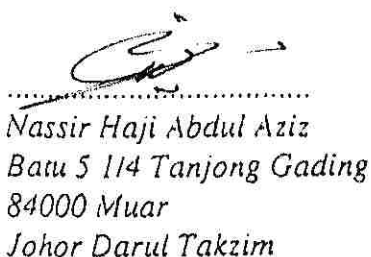 Nassir Haji Abdul Aziz
Batu 5 1/4 Tanjong Gading
84000 Muar
Johor Darul Takzim